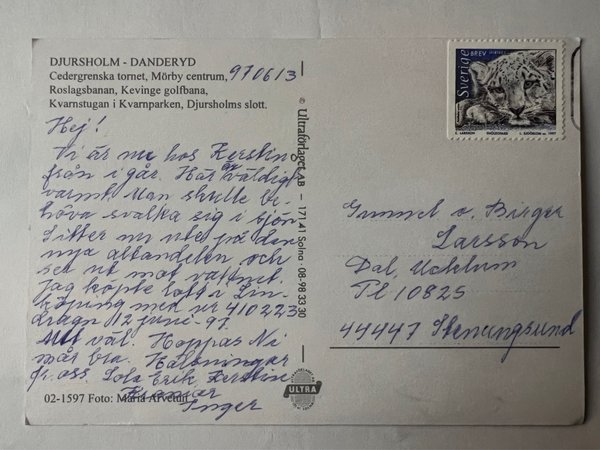 DJURSHOLM - DANDERYD
Cedergrenska tornet, Mörby centrum,
Roslagsbanan, Kevinge golfbana,
Kvarnstugan i Kvarnparken, Djursholms slott.
970613
Hej!
Vi är nu hos Kerstin
från i går. Här är väldigt
varmt. Man skulle be-
höva svalka sig i sjön
Sitter nu ute på den
nya altandelen och
ser ut mot vattnet.
Jag köpte lott i Lin-
köping med nr 410223
dragn 12 juni-97.
Allt väl. Hoppas Ni
mår bra. Hälsningar
fr. oss. Lola Erik, Kerstin
Inger
02-1597 Foto: Maria Arvetun
® Ultraförlaget AB - 171 41 Solna · 08-98 33 30
ULTRA
Sverige
BREV
SNÖLEOPARD
1997
Gunnel o. Birger
Larsson
Dal, Ucklum
Pl 10825
44447 Stenungsund